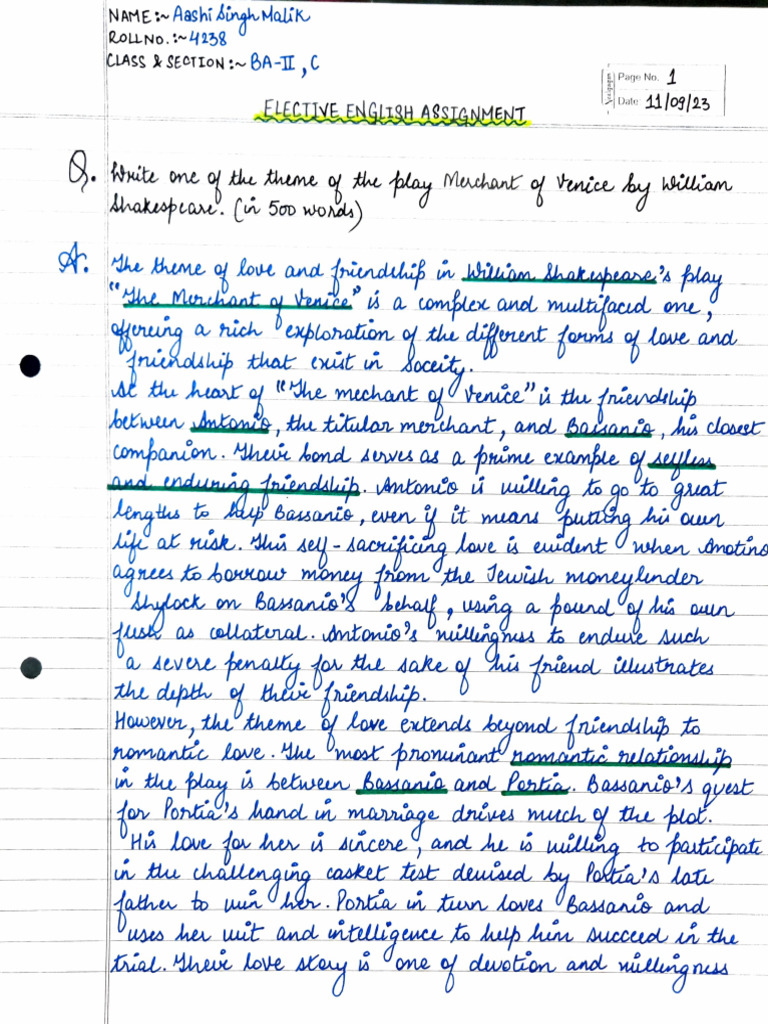 NAME:~ Aashi Singh Malik
ROLL NO.:~ 4238
CLASS & SECTION:~ BA-II, C
Page No. 1
Date: 11/09/23
ELECTIVE ENGLISH ASSIGNMENT
Q. Write one of the theme of the play Merchant of Venice by William
Shakespeare. (in 500 words)
A. The theme of love and friendship in William Shakespeare's play
"The Merchant of Venice" is a complex and multifaced one,
offering a rich exploration of the different forms of love and
friendship that exist in soceity.
At the heart of "The mechant of Venice" is the friendship
between Antonio, the titular merchant, and Bassanio, his closest
companion. Their bond serves as a prime example of selfless
and enduring friendship. Antonio is willing to go to great
lengths to help Bassanio, even if it means putting his own
life at risk. This self-sacrificing love is evident when Anotino
agrees to borrow money from the Jewish moneylender
Shylock on Bassanio's behalf, using a pound of his own
flesh as collateral. Antonio's willingness to endure such
a severe penalty for the sake of his friend illustrates
the depth of their friendship.
However, the theme of love extends beyond friendship to
romantic love. The most pronunant romantic relationship
in the play is between Bassanio and Portia. Bassanio's quest
for Portia's hand in marriage drives much of the plot.
His love for her is sincere, and he is willing to participate
in the challenging casket test devised by Portia's late
father to win her. Portia in turn loves Bassanio and
uses her wit and intelligence to help him succeed in the
trial. Their love story is one of devotion and willingness